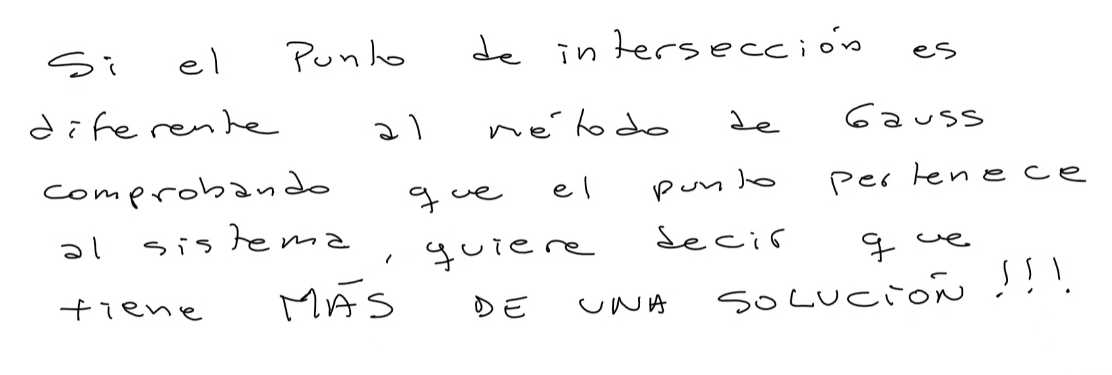 Si el Punto de intersección es
diferente al método de Gauss
comprobando que el punto pertenece
al sistema, quiere decir que
tiene MÁS DE UNA SOLUCIÓN!!!